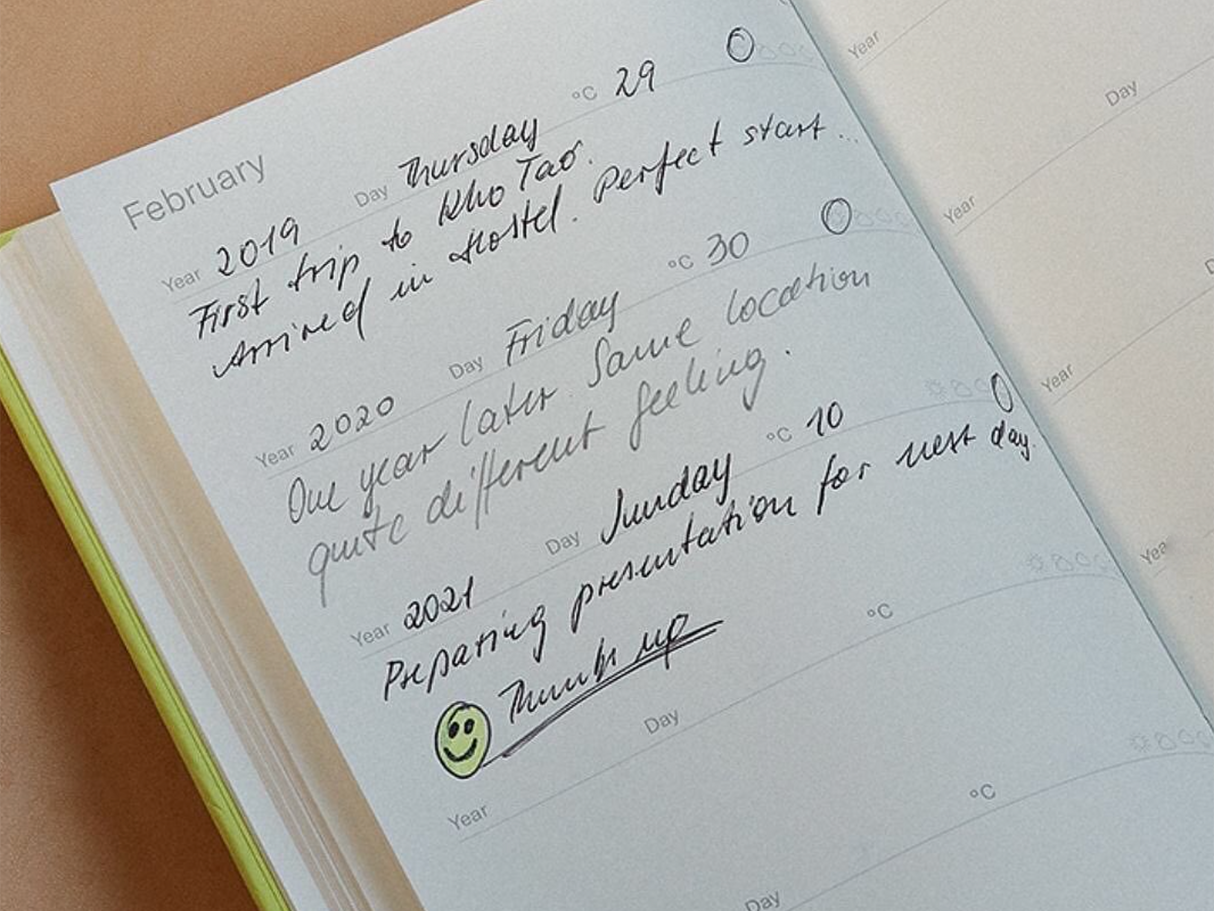 February
Year 2019 Day Thursday °C 29
First trip to Kho Tao.
Arrived in Hostel. Perfect start...
Year 2020 Day Friday °C 30
One year later. Same location
quite different feeling.
Year 2021 Day Sunday °C 10
Preparing presentation for next day.
Thumbs up
Year Day °C
Day °C
Year
Day
Year
Year